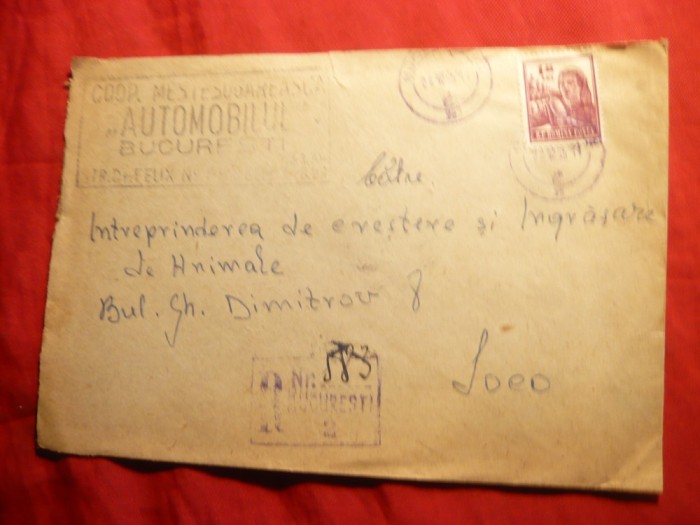 COOP. MESTESUGAREASCA
"AUTOMOBILUL"
BUCURESTI
STR. Dr. FELIX Nr.
Către
Intreprinderea de creștere și Ingrășare
de Animale
Bul. Gh. Dimitrov 8
Loco
R Nr. 583
BUCURESTI
2